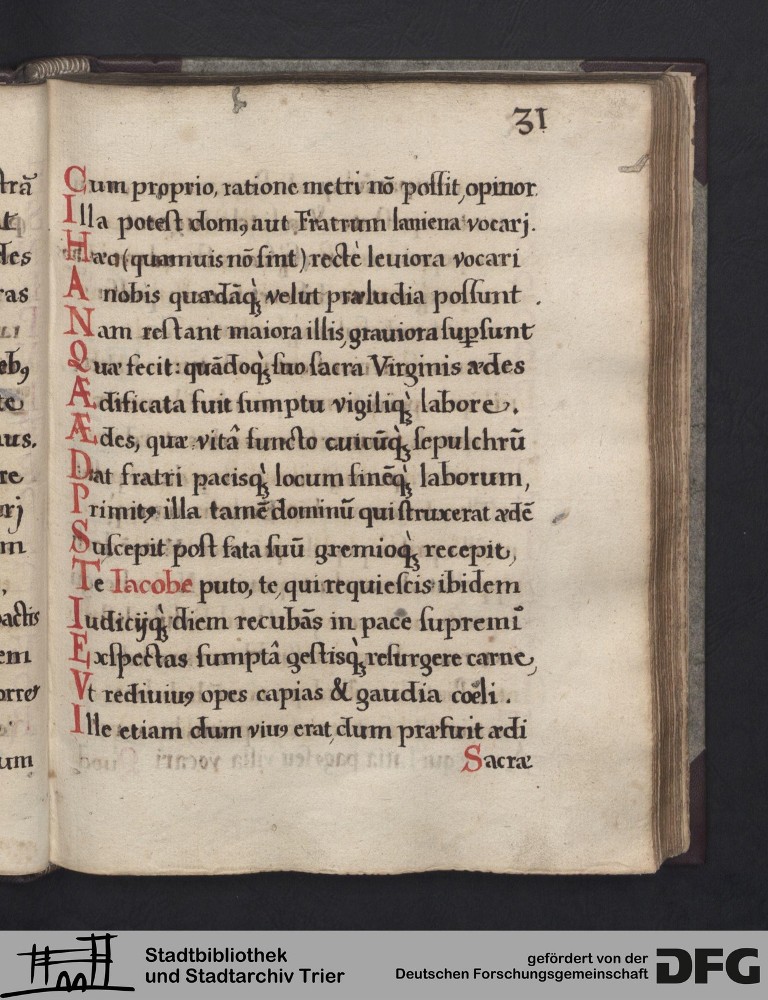 31
Cum proprio, ratione metri nō possit, opinor.
Illa potest domꝰ, aut Fratrum laniena vocarj.
Hæc (quamuis nō sint) rectè leuiora vocari
A nobis quædāqꝫ velut præludia possunt .
Nam restant maiora illis, grauiora supsunt
Quæ fecit: quādoqꝫ suo sacra Virginis ædes
Ædificata fuit sumptu vigiliqꝫ labore.
Ædes, quæ vitâ functo cuicūqꝫ sepulchrū
Dat fratri pacisqꝫ locum finēqꝫ laborum,
Primitꝰ illa tamē dominū qui struxerat ædē
Suscepit post fata suū gremioqꝫ recepit,
Te Iacobe puto, te, qui requiescis ibidem
Iudicijqꝫ diem recubās in pace supremi
Exspectas sumptâ gestisqꝫ resurgere carne,
Vt rediuiuꝰ opes capias & gaudia coeli .
Ille etiam dum viuꝰ erat, dum præfuit ædi
Sacræ
trā
des
ras
te
re
em
um
Stadtbibliothek
und Stadtarchiv Trier
gefördert von der
Deutschen Forschungsgemeinschaft
DFG